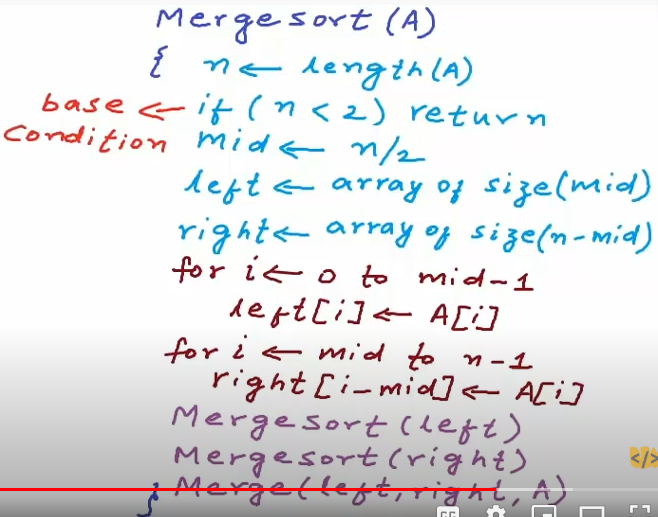 Mergesort (A)
{ n ← length(A)
base ← if (n < 2) return
Condition mid ← n/2
left ← array of size(mid)
right ← array of size(n-mid)
for i ← 0 to mid-1
left[i] ← A[i]
for i ← mid to n-1
right [i-mid] ← A[i]
Mergesort (left)
Mergesort (right)
</>
} Merge(left, right, A)
CC